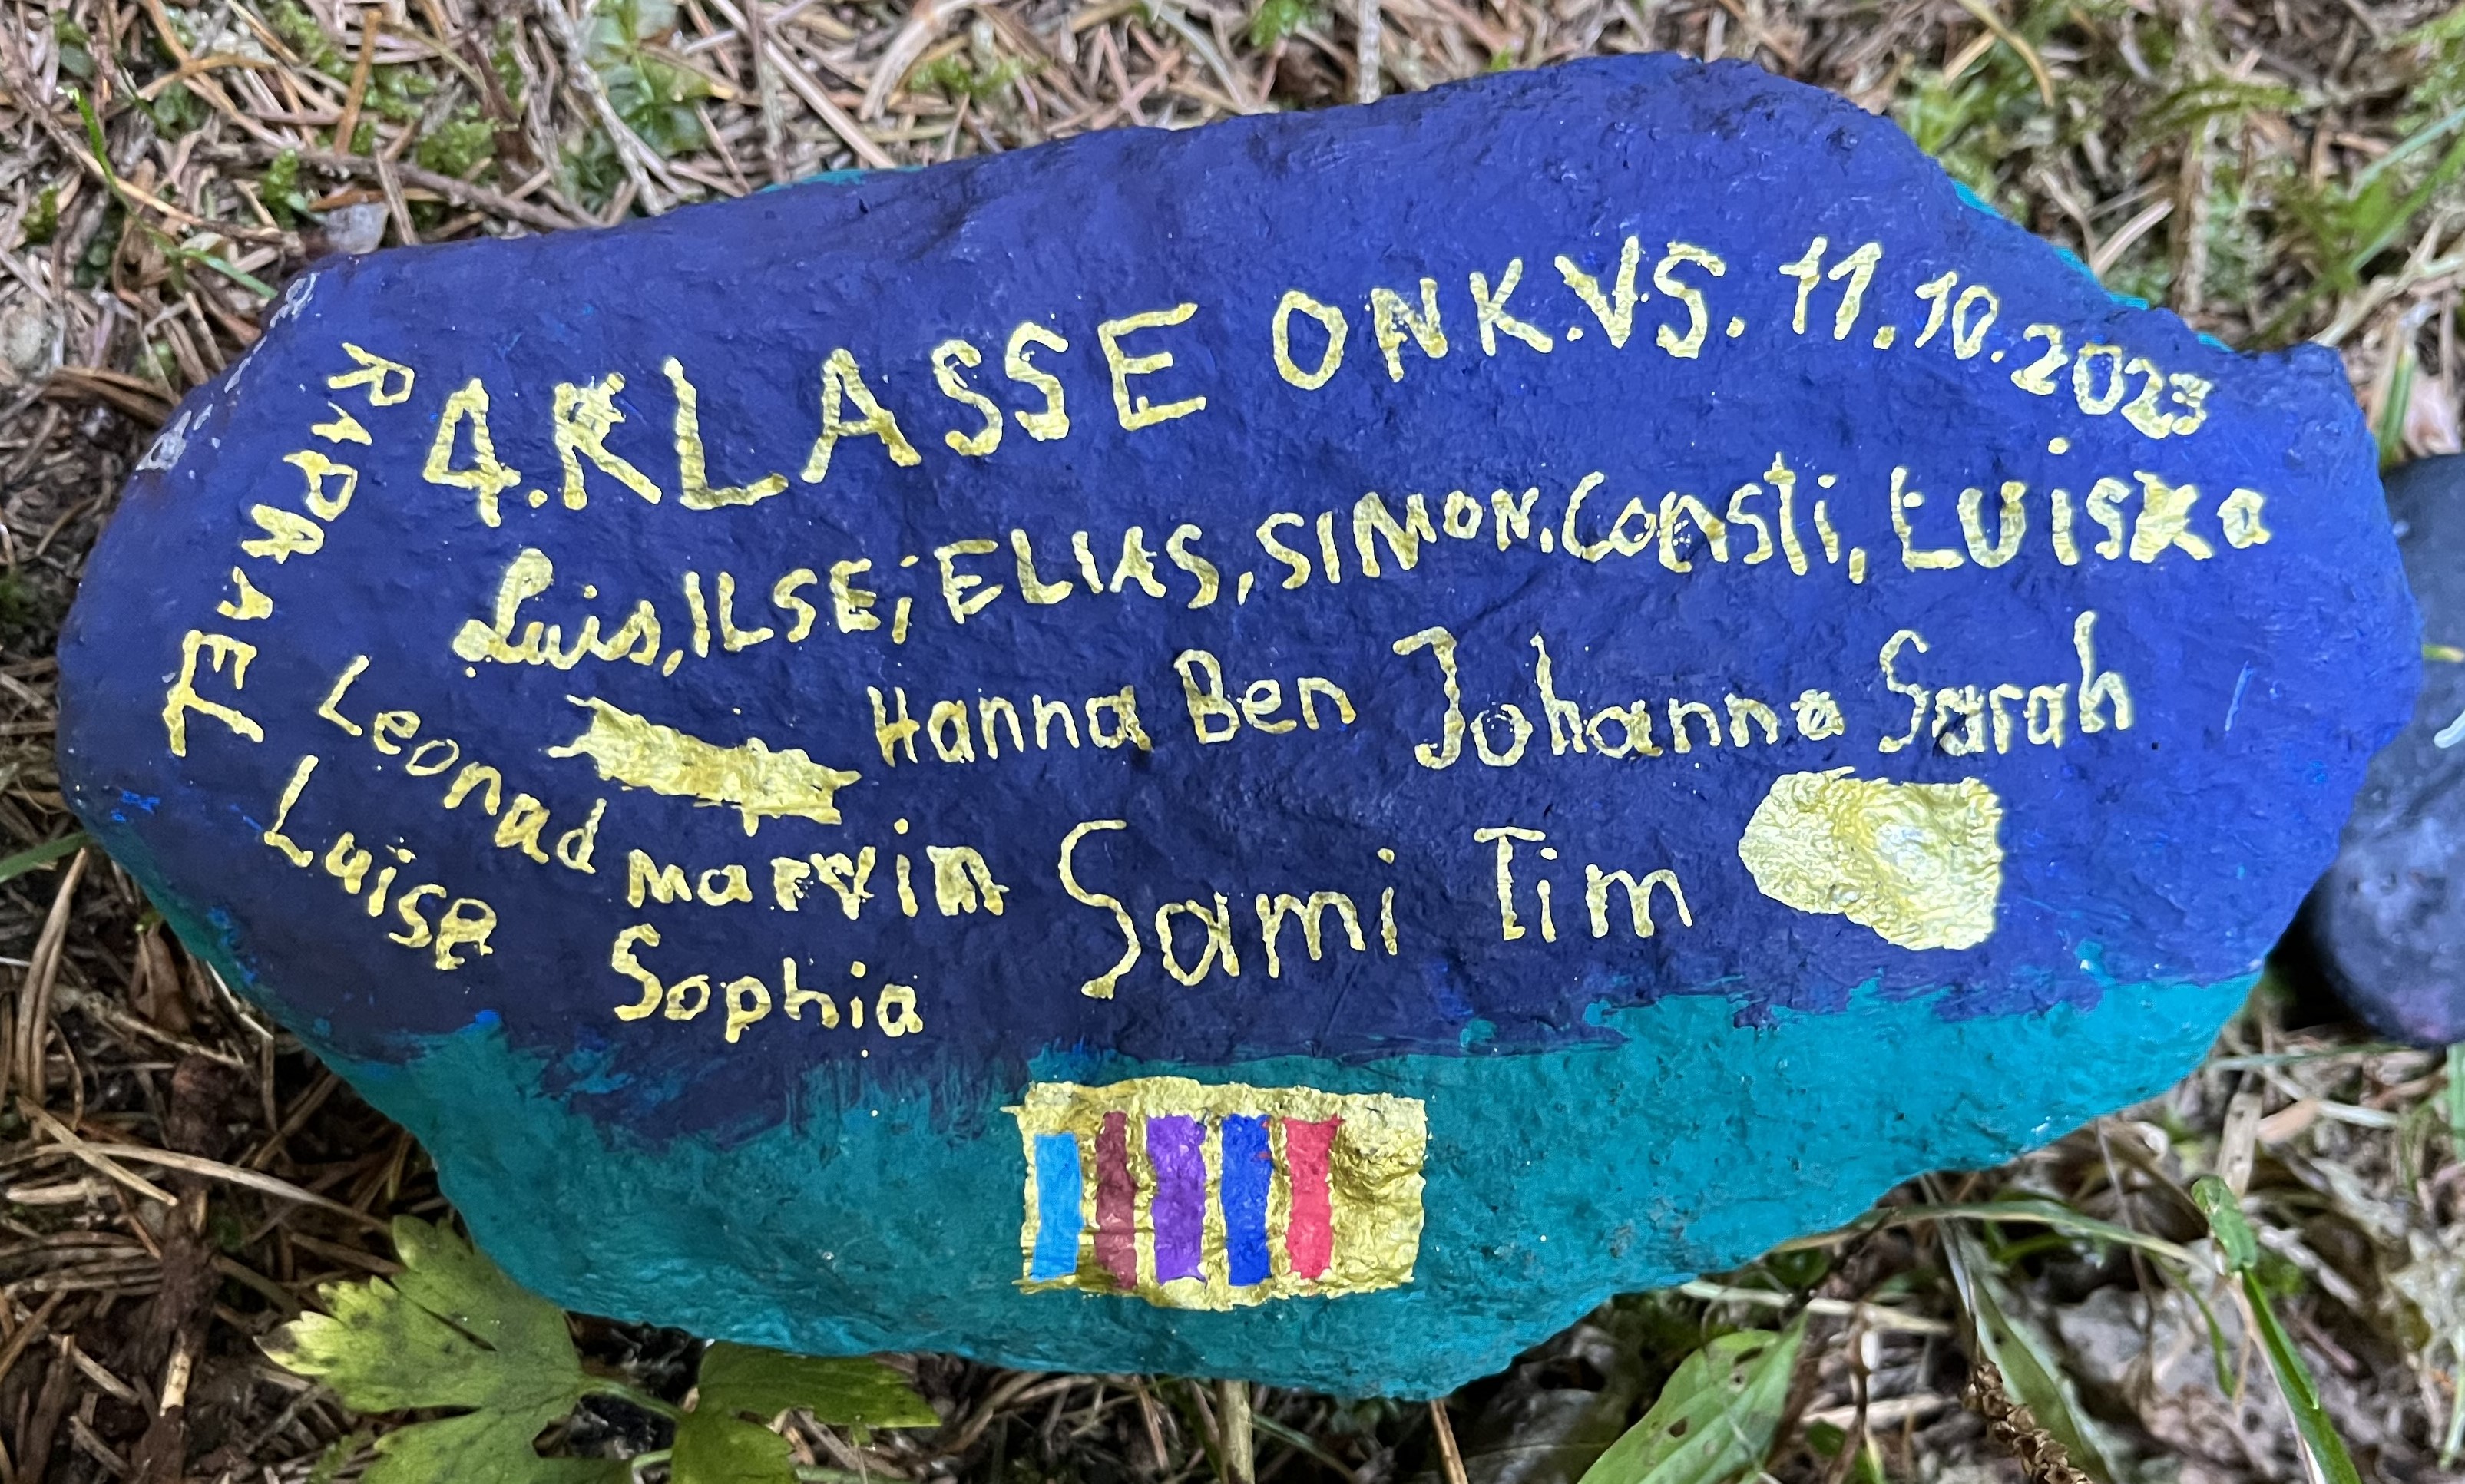 4. KLASSE ONK.VS. 11.10.2023
RAPHAEL
Luis, ILSE, ELIAS, SIMON, Consti, LUiska
Leonad Hanna Ben Johanna Sarah
Luise marvin Sami Tim
Sophia